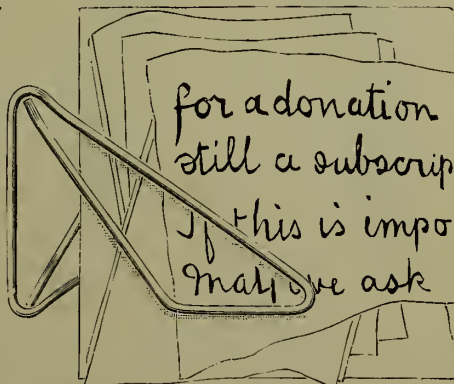 for a donation
still a subscrip
If this is impo
May we ask